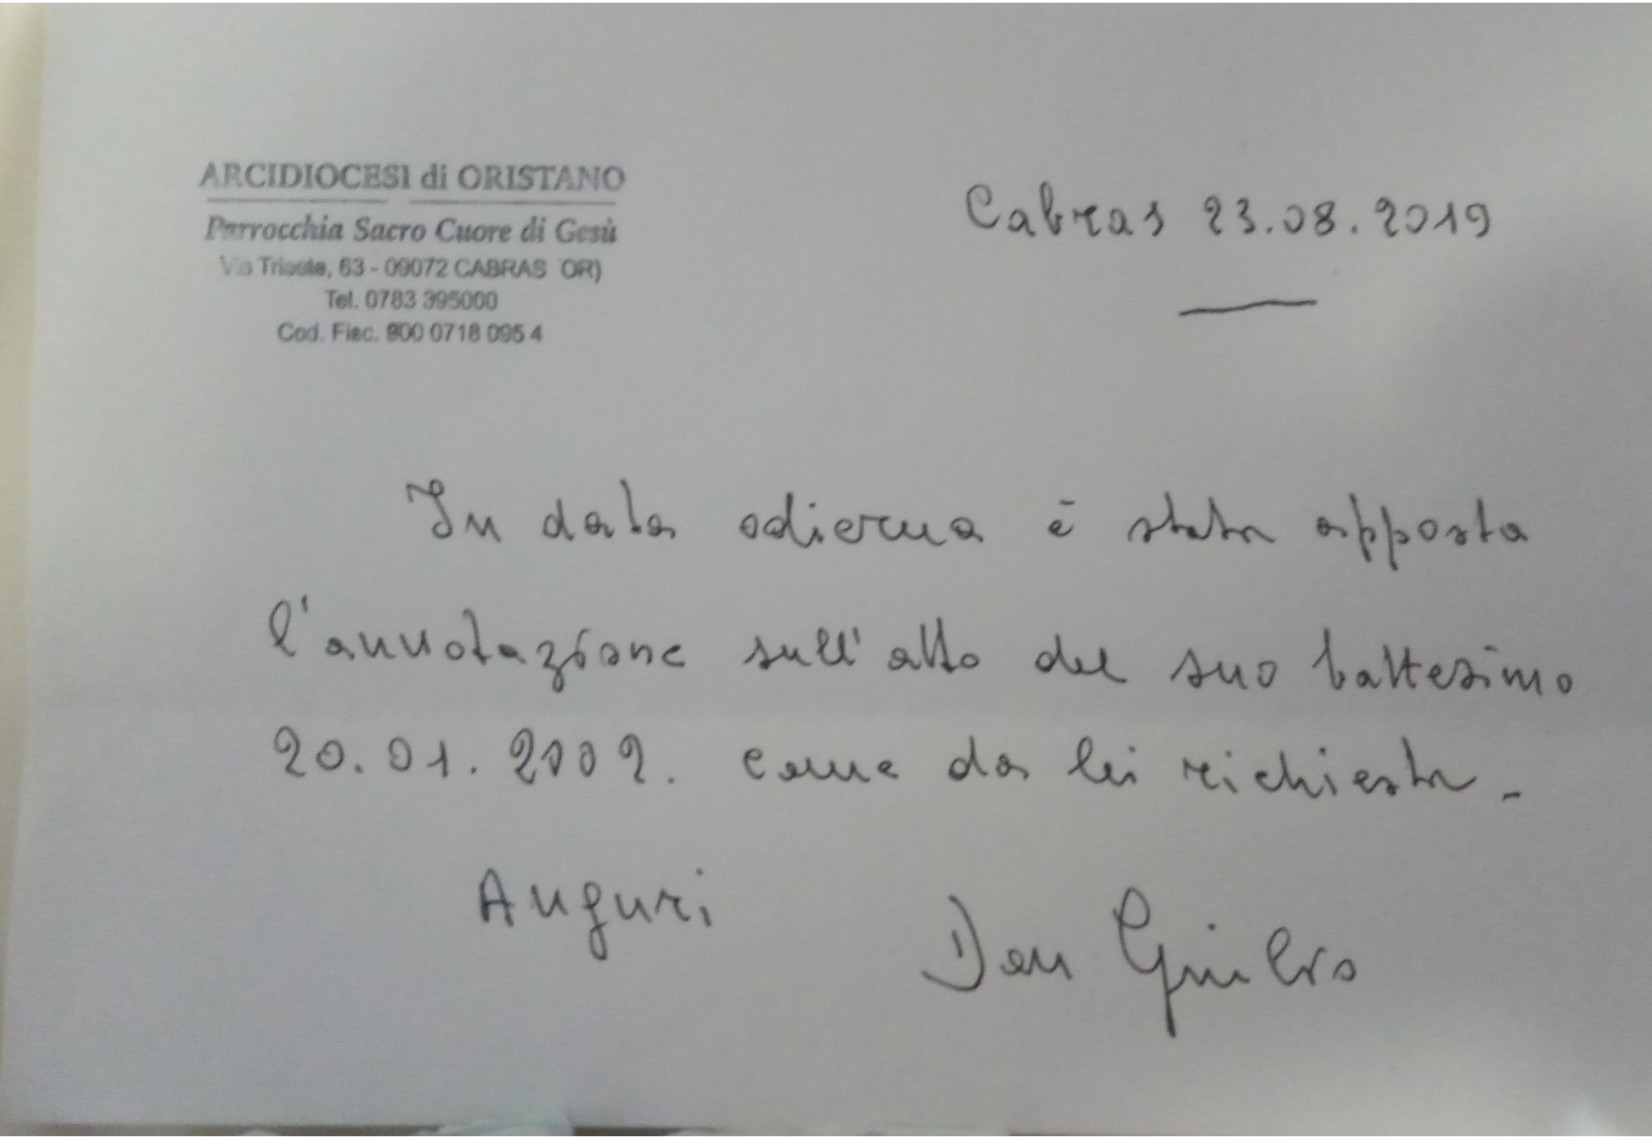 ARCIDIOCESI di ORISTANO
Parrocchia Sacro Cuore di Gesù
Via Trieste, 63 - 09072 CABRAS OR)
Tel. 0783 395000
Cod. Fisc. 900 0718 095 4
Cabras 23.08.2019
In data odierna è stata apposta
l'annotazione sull'atto del suo battesimo
20.01.2002. come da lei richiesta.
Auguri
Don Giulio